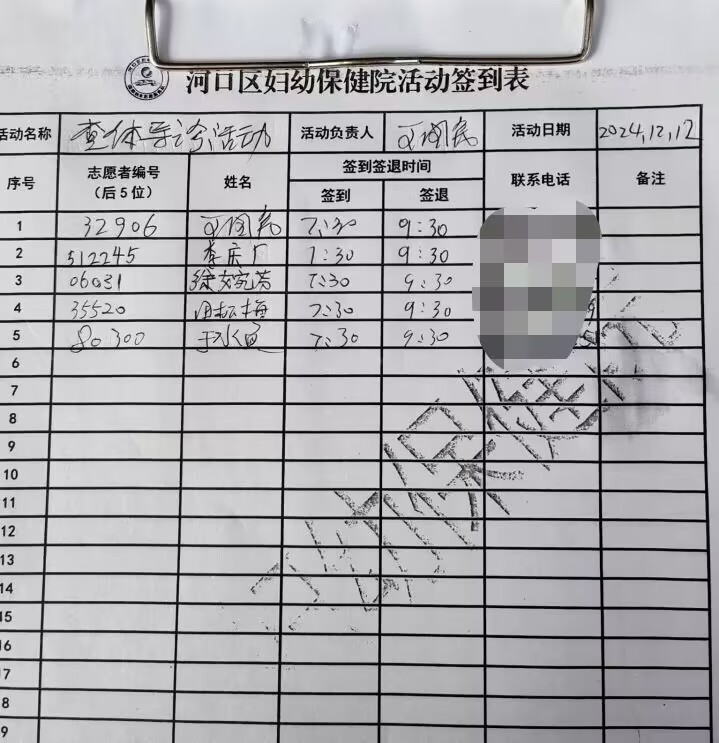 河口区妇幼保健院活动签到表
活动名称 查体导诊活动 活动负责人 活动日期 2024,12,12
序号 志愿者编号（后5位） 姓名 签到签退时间 联系电话 备注
签到 签退
1 32906 7:30 9:30
2 512245 李庆广 7:30 9:30
3 06031 7:30 9:30
4 35520 田松梅 7:30 9:30
5 80300 7:30 9:30
6
7
8
9
10
11
12
13
14
15
16
7
8
9
妇幼保健院